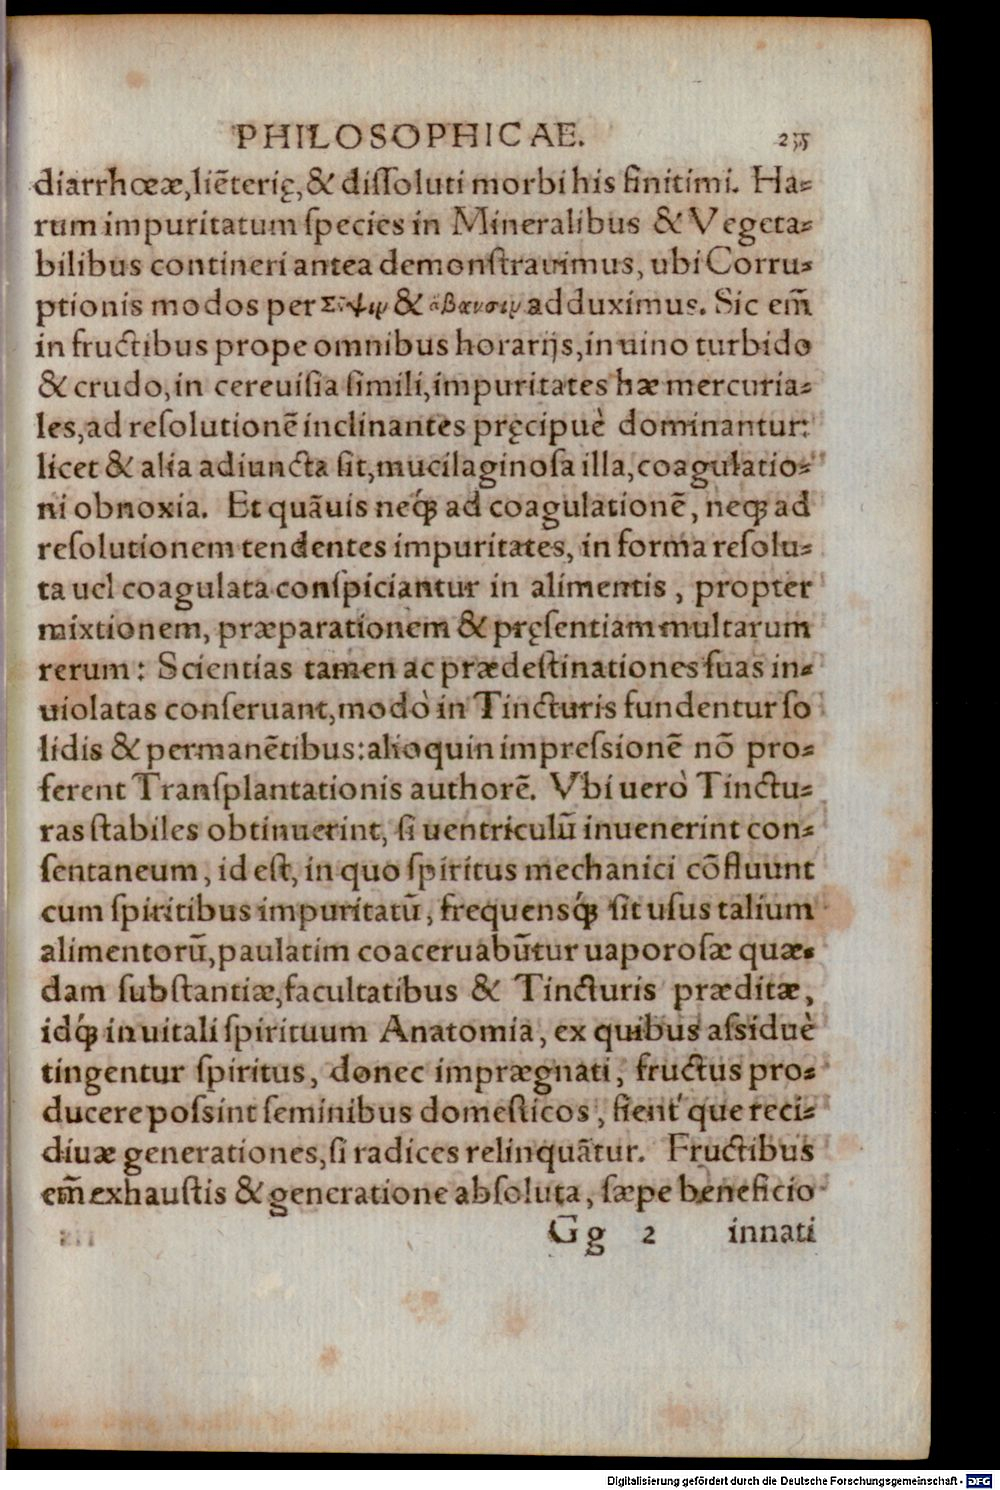 PHILOSOPHICAE.
diarrhœæ,liẽterię,& diſſoluti morbi his finitimi. Ha=
rum impuritatum ſpecies in Mineralibus & Vegeta=
bilibus contineri antea demonſtrauimus, ubi Corru=
ptionis modos per & adduximus. Sic em̃
in fructibus prope omnibus horarijs,in uino turbido
& crudo,in cereuiſia ſimili,impuritates hæ mercuria=
les,ad reſolutionẽ inclinantes pręcipuè dominantur:
licet & alia adiuncta ſit,mucilaginoſa illa,coagulatio=
ni obnoxia. Et quãuis neq́ꝫ ad coagulationẽ, neqꝫ ad
reſolutionem tendentes impuritates, in forma reſolu=
ta uel coagulata conſpiciantur in alimentis, propter
mixtionem, præparationem & pręſentiam multarum
rerum: Scientias tamen ac prædeſtinationes ſuas in=
uiolatas conſeruant,modò in Tincturis fundentur ſo
lidis & permanẽtibus:alioquin impreſsionẽ nõ pro=
ferent Transplantationis authorẽ. Vbi uerò Tinctu=
ras ſtabiles obtinuerint, ſi uentriculũ inuenerint con=
ſentaneum, id eſt, in quo ſpiritus mechanici cõfluunt
cum ſpiritibus impuritatũ, frequensq́ꝫ ſit uſus talium
alimentorũ,paulatim coaceruabũtur uaporoſæ quæ=
dam ſubſtantiæ,facultatibus & Tincturis præditæ,
idq́ꝫ in uitali ſpirituum Anatomia, ex quibus aſsiduè
tingentur ſpiritus, donec imprægnati, fructus pro=
ducere poſsint ſeminibus domeſticos, fient́ que reci=
diuæ generationes,ſi radices relinquãtur. Fructibus
em̃ exhauſtis & generatione abſoluta, ſæpe beneficio
Gg 2 innati
Digitalisierung gefördert durch die Deutsche Forschungsgemeinschaft - DFG